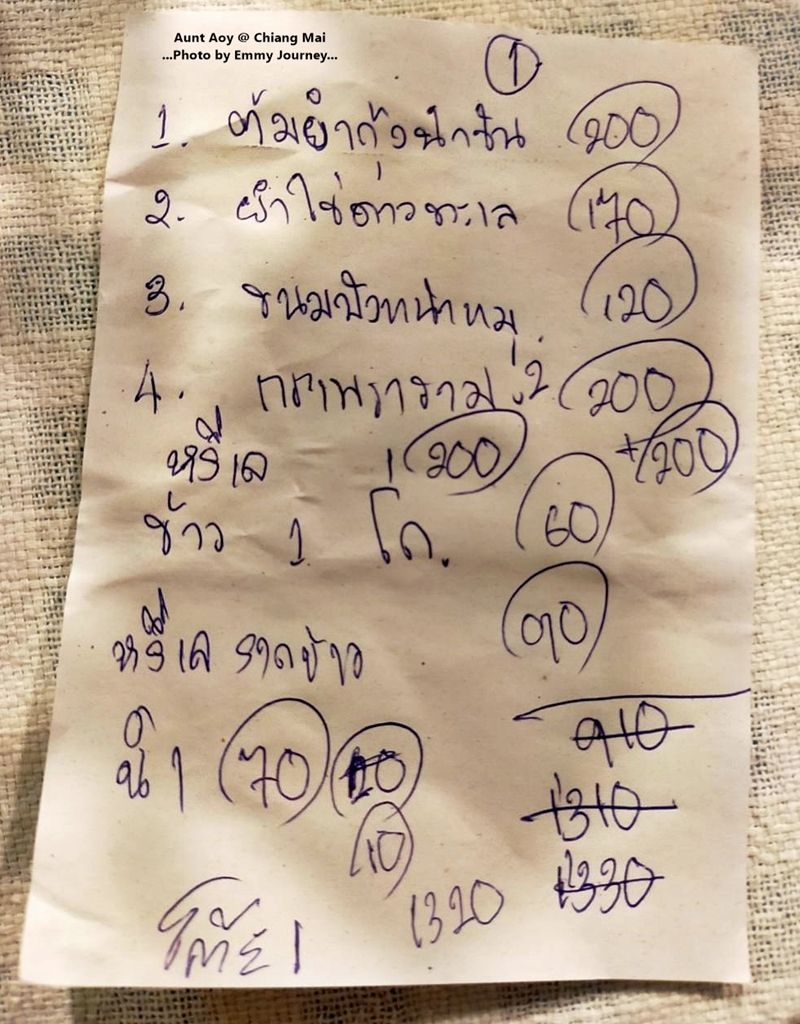 Aunt Aoy @ Chiang Mai
...Photo by Emmy Journey...
1
1. ต้มยำกุ้งน้ำข้น 200
2. ยำไข่ดาวทะเล 170
3. ขนมปังหน้าหมู 120
4. กะเพรารวม 2 200
1 200 +200
ข้าว 1 โถ 60
ราดข้าว 90
910
น้ำ 1 70
1310
10
1330
1320
โต๊ะ 1